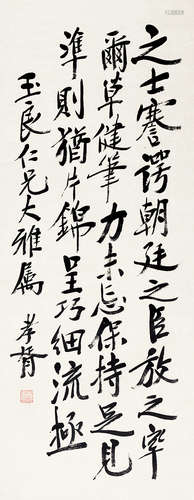 之士謇諤朝廷之臣放之率
爾草健筆力未忘保持足見
準則猶片錦呈巧細流極
玉良仁兄大雅属 孝胥